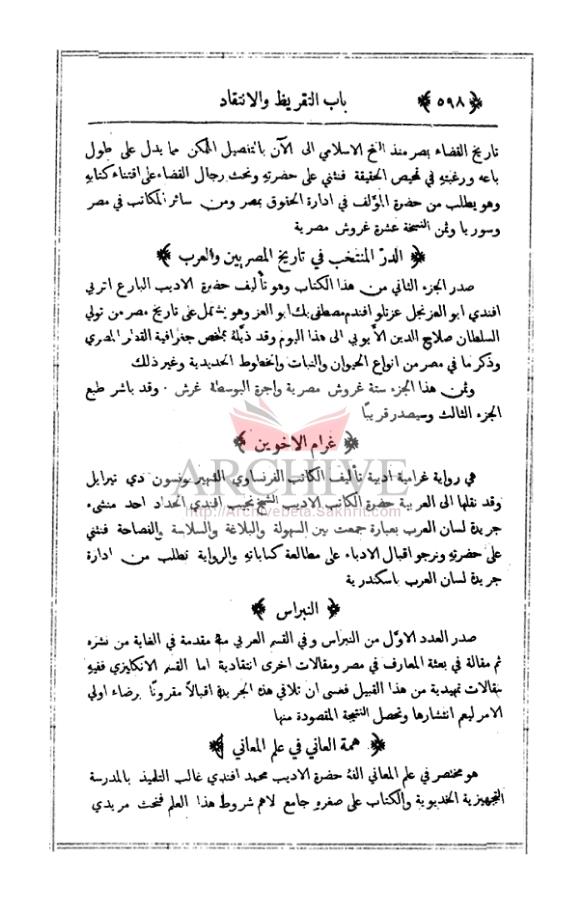 ﴿٥٩٨﴾ باب التقريظ والانتقاد
تاريخ القضاء بمصر منذ الفتح الاسلامي الى الآن بالتفصيل الممكن مما يدل على طول
باعه ورغبته في تمحيص الحقيقة فنثني على حضرته ونحث رجال القضاء على اقتناء كتابه
وهو يطلب من حضرة المؤلف في ادارة الحقوق بمصر ومن سائر المكاتب في مصر
وسوريا وثمن النسخة عشرة غروش مصرية
﴿ الدرّ المنتخب في تاريخ المصريين والعرب ﴾
صدر الجزء الثاني من هذا الكتاب وهو تأليف حضرة الاديب البارع اتربي
افندي ابو العز نجل عزتلو افندم مصطفى بك ابو العز وهو يشتمل على تاريخ مصر من تولي
السلطان صلاح الدين الأيوبي الى هذا اليوم وقد ذيلهُ بملخص جغرافية القطر المصري
وذكر ما في مصر من انواع الحيوان والنبات والخطوط الحديدية وغير ذلك
وثمن هذا الجزء ستة غروش مصرية واجرة البوسطة غرش . وقد باشر طبع
الجزء الثالث وسيصدر قريبًا
﴿ غرام الاخوين ﴾
هي رواية غرامية ادبية تأليف الكاتب الفرنساوي الشهير بونسون دي تيرايل
وقد نقلها الى العربية حضرة الكاتب الاديب الشيخ نجيب افندي الحداد احد منشىء
جريدة لسان العرب بعبارة جمعت بين السهولة والبلاغة والسلاسة والفصاحة فنثني
على حضرته ونرجو اقبال الادباء على مطالعة كتاباته والرواية تطلب من ادارة
جريدة لسان العرب باسكندرية
﴿ النبراس ﴾
صدر العدد الاوّل من النبراس وفي القسم العربي منهُ مقدمة في الغاية من نشره
ثم مقالة في بعثة المعارف في مصر ومقالات اخرى انتقادية اما القسم الانكليزي ففيهِ
مقالات تمهيدية من هذا القبيل فعسى ان تلاقي هذه الجريدة اقبالاً مقرونًا برضاء اولي
الامر ليعم انتشارها وتحصل النتيجة المقصودة منها
﴿ همة العاني في علم المعاني ﴾
هو مختصر في علم المعاني الفهُ حضرة الاديب محمد افندي غالب التلميذ بالمدرسة
التجهيزية الخديوية والكتاب على صغره جامع لاهم شروط هذا العلم فنحث مريدي
ARCHIVE
http://Archivebeta.Sakhrit.com